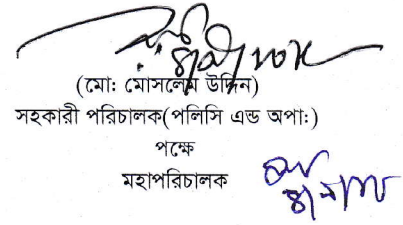 (মো: মোসলেম উদ্দিন)
সহকারী পরিচালক(পলিসি এন্ড অপা:)
পক্ষে
মহাপরিচালক